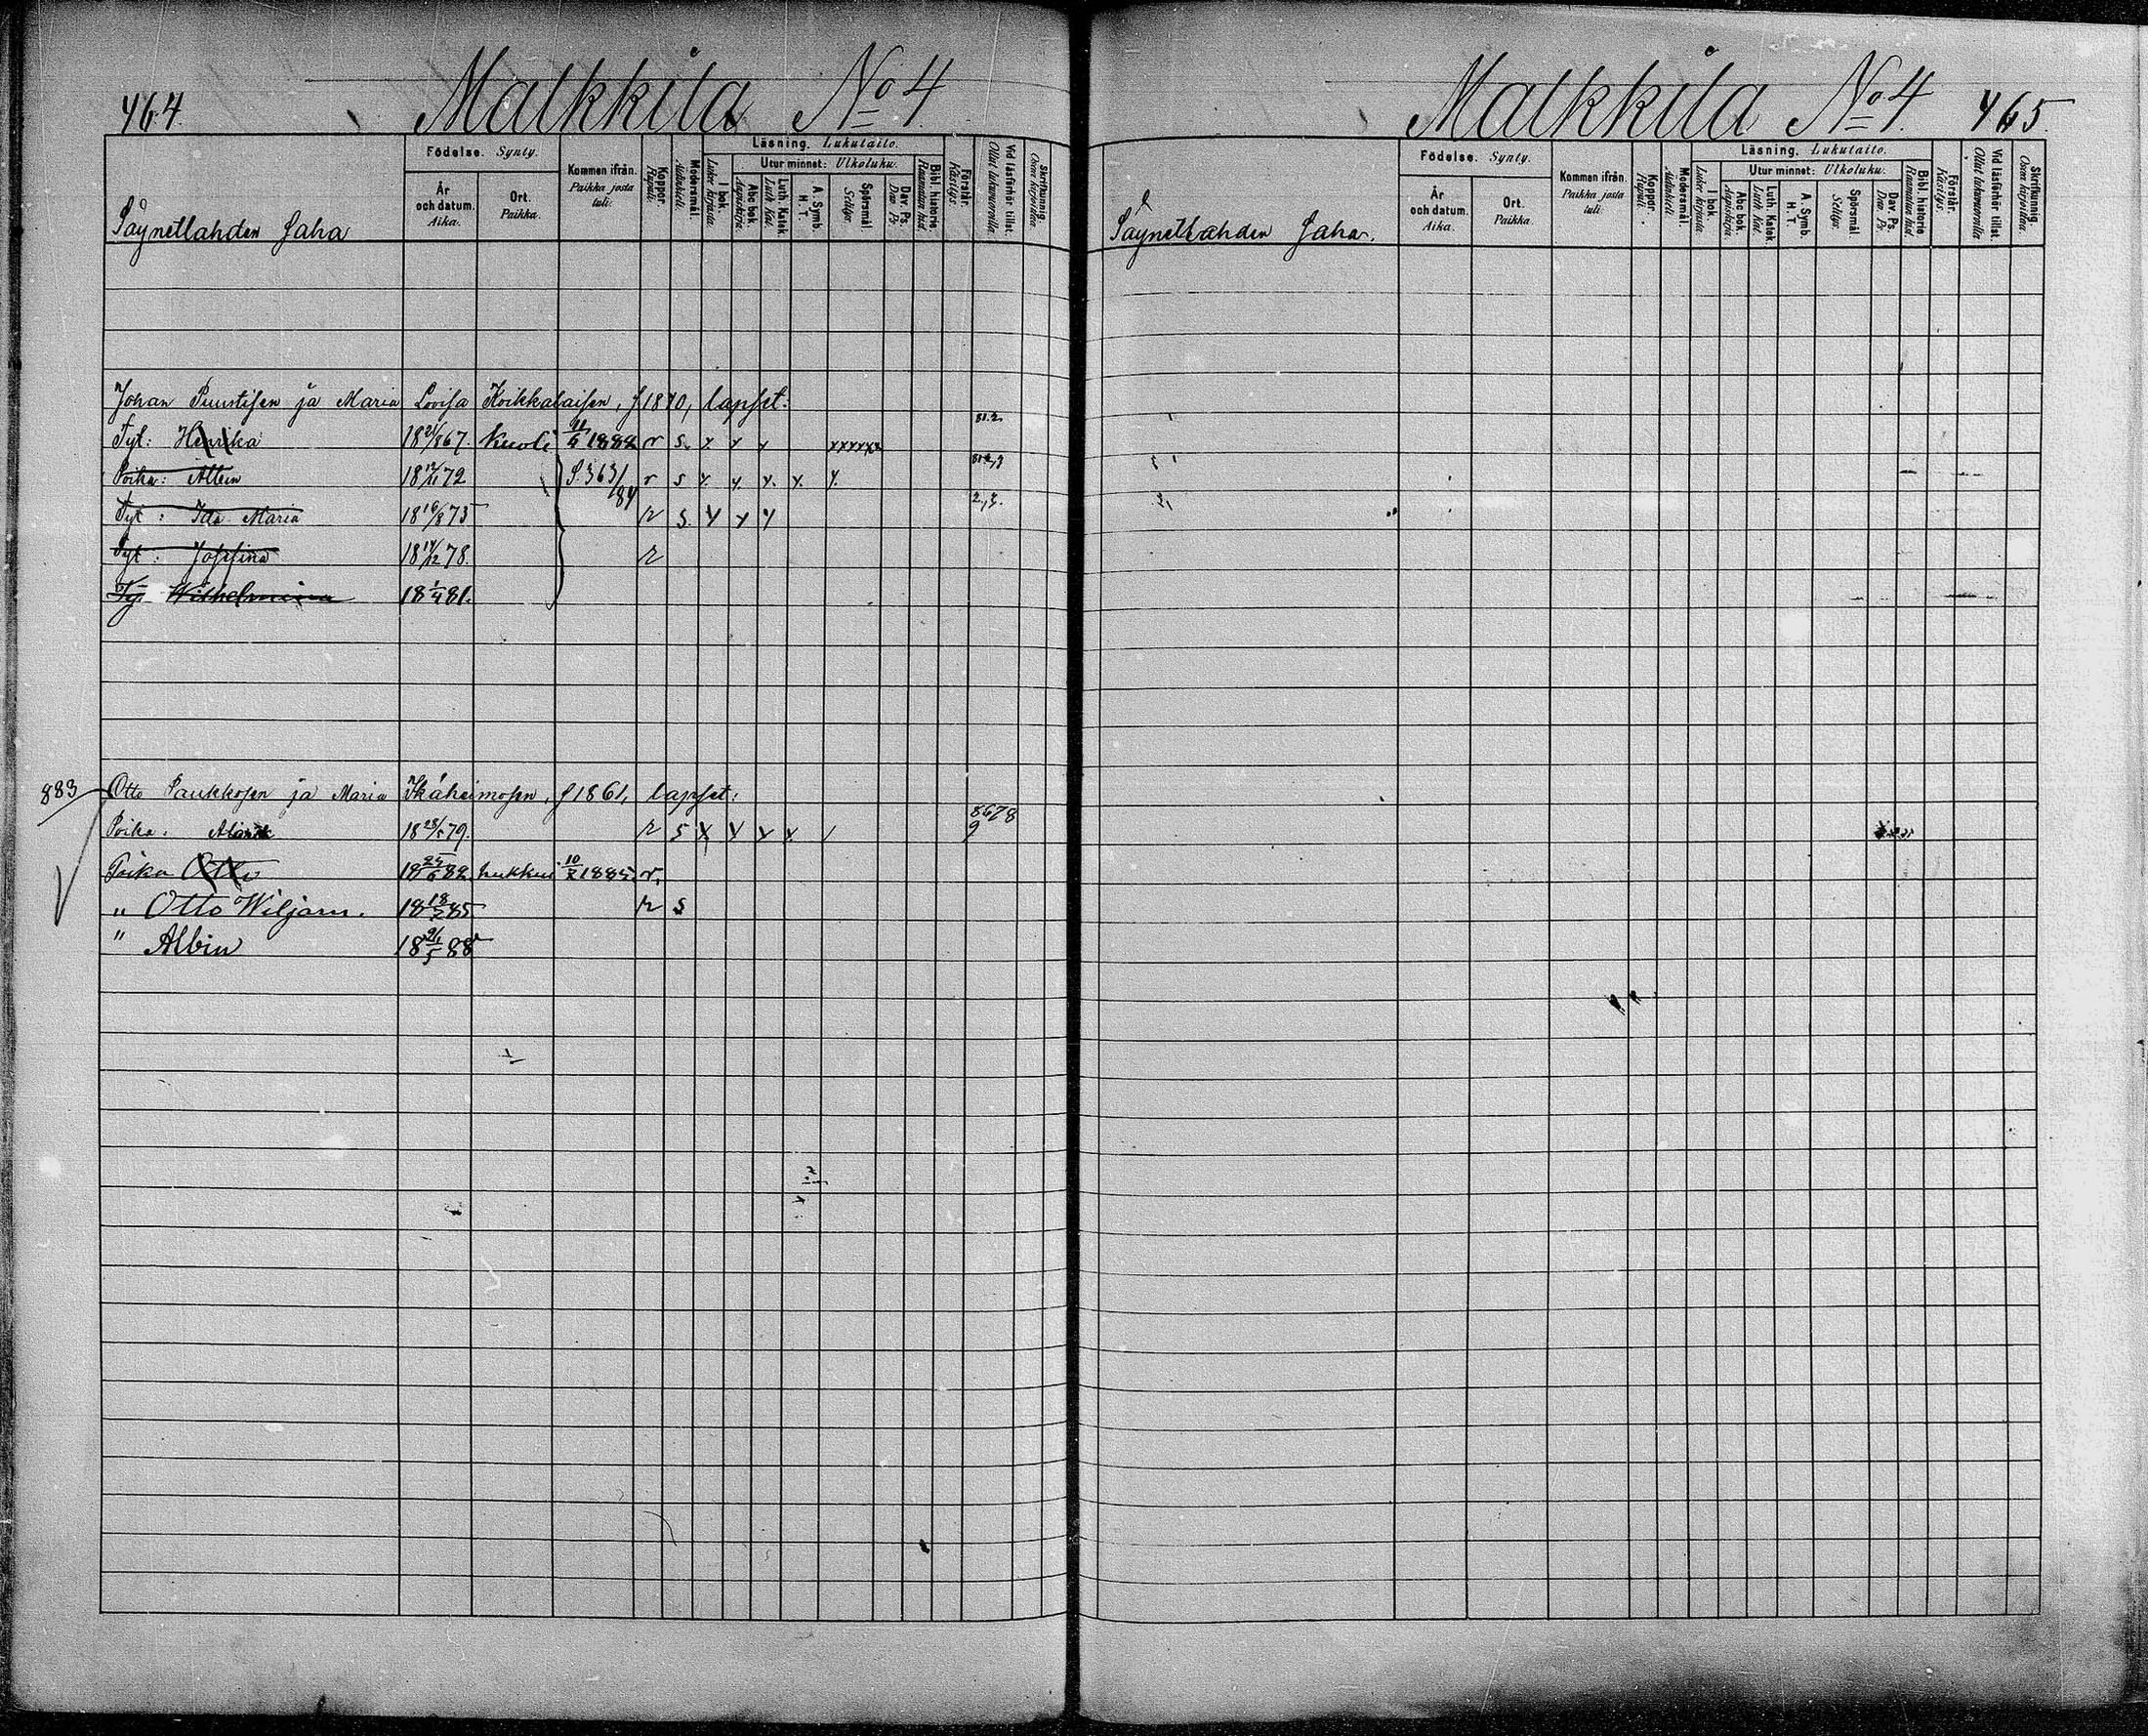 464. Malkkila No 4.
Födelse. Synty.
År och datum. Aika.
Ort. Paikka.
Kommen ifrån. Paikka josta tuli.
Koppor. Rupuli.
Modersmål. Äidinkieli.
Läsning. Lukutaito.
I bok. Lukee kirjasta.
Utur minnet: Ulkoluku.
Abc bok. Aapiskirja.
Luth. Katek. Luth. Kat.
A. Symb. H. T.
Spörsmål Selitys.
Dav. Ps. Daw. Ps.
Bibl. historie Raamatun hist.
Förstår. Käsitys.
Vid läsförhör tillst. Ollut lukuvuorolla
Skrifkunnig. Osaa kirjoittaa.
Säynetlahden Saha
Johan Puustisen ja Maria Lovisa Koikkalaisen, s. 1840, lapset.
Tyt: Henrika 18 21/8 67. Kuoli 1882 r s. x x x xxxxxx 81.2.
Poika: Albin 18 72 S. 363/84 r s x x. x. x. x.
Tyt: Ida Maria 18 16/8 73 r s. x x x
Tyt: Josefina 18 14/12 78. r
Ty: Wilhelmiina 18 81.
883 Otto Paukkosen ja Maria Ikäheimosen, s. 1861, lapset:
Poika. 18 28/5 79. r s x x x x. / 8678 9
Poika Otto 18 25/6 82. hukkui 10/ 1885. r.
" Otto Wiljam. 18 18/ 85 r s
" Albin 18 88
Malkkila No 4. 465
Födelse. Synty.
År och datum. Aika.
Ort. Paikka.
Kommen ifrån. Paikka josta tuli.
Koppor. Rupuli.
Modersmål. Äidinkieli.
Läsning. Lukutaito.
I bok. Lukee kirjasta.
Utur minnet: Ulkoluku.
Abc bok. Aapiskirja.
Luth. Katek. Luth. Kat.
A. Symb. H. T.
Spörsmål Selitys.
Dav. Ps. Daw. Ps.
Bibl. historie Raamatun hist.
Förstår. Käsitys.
Vid läsförhör tillst. Ollut lukuvuorolla
Skrifkunnig. Osaa kirjoittaa.
Säynetlahden Saha.